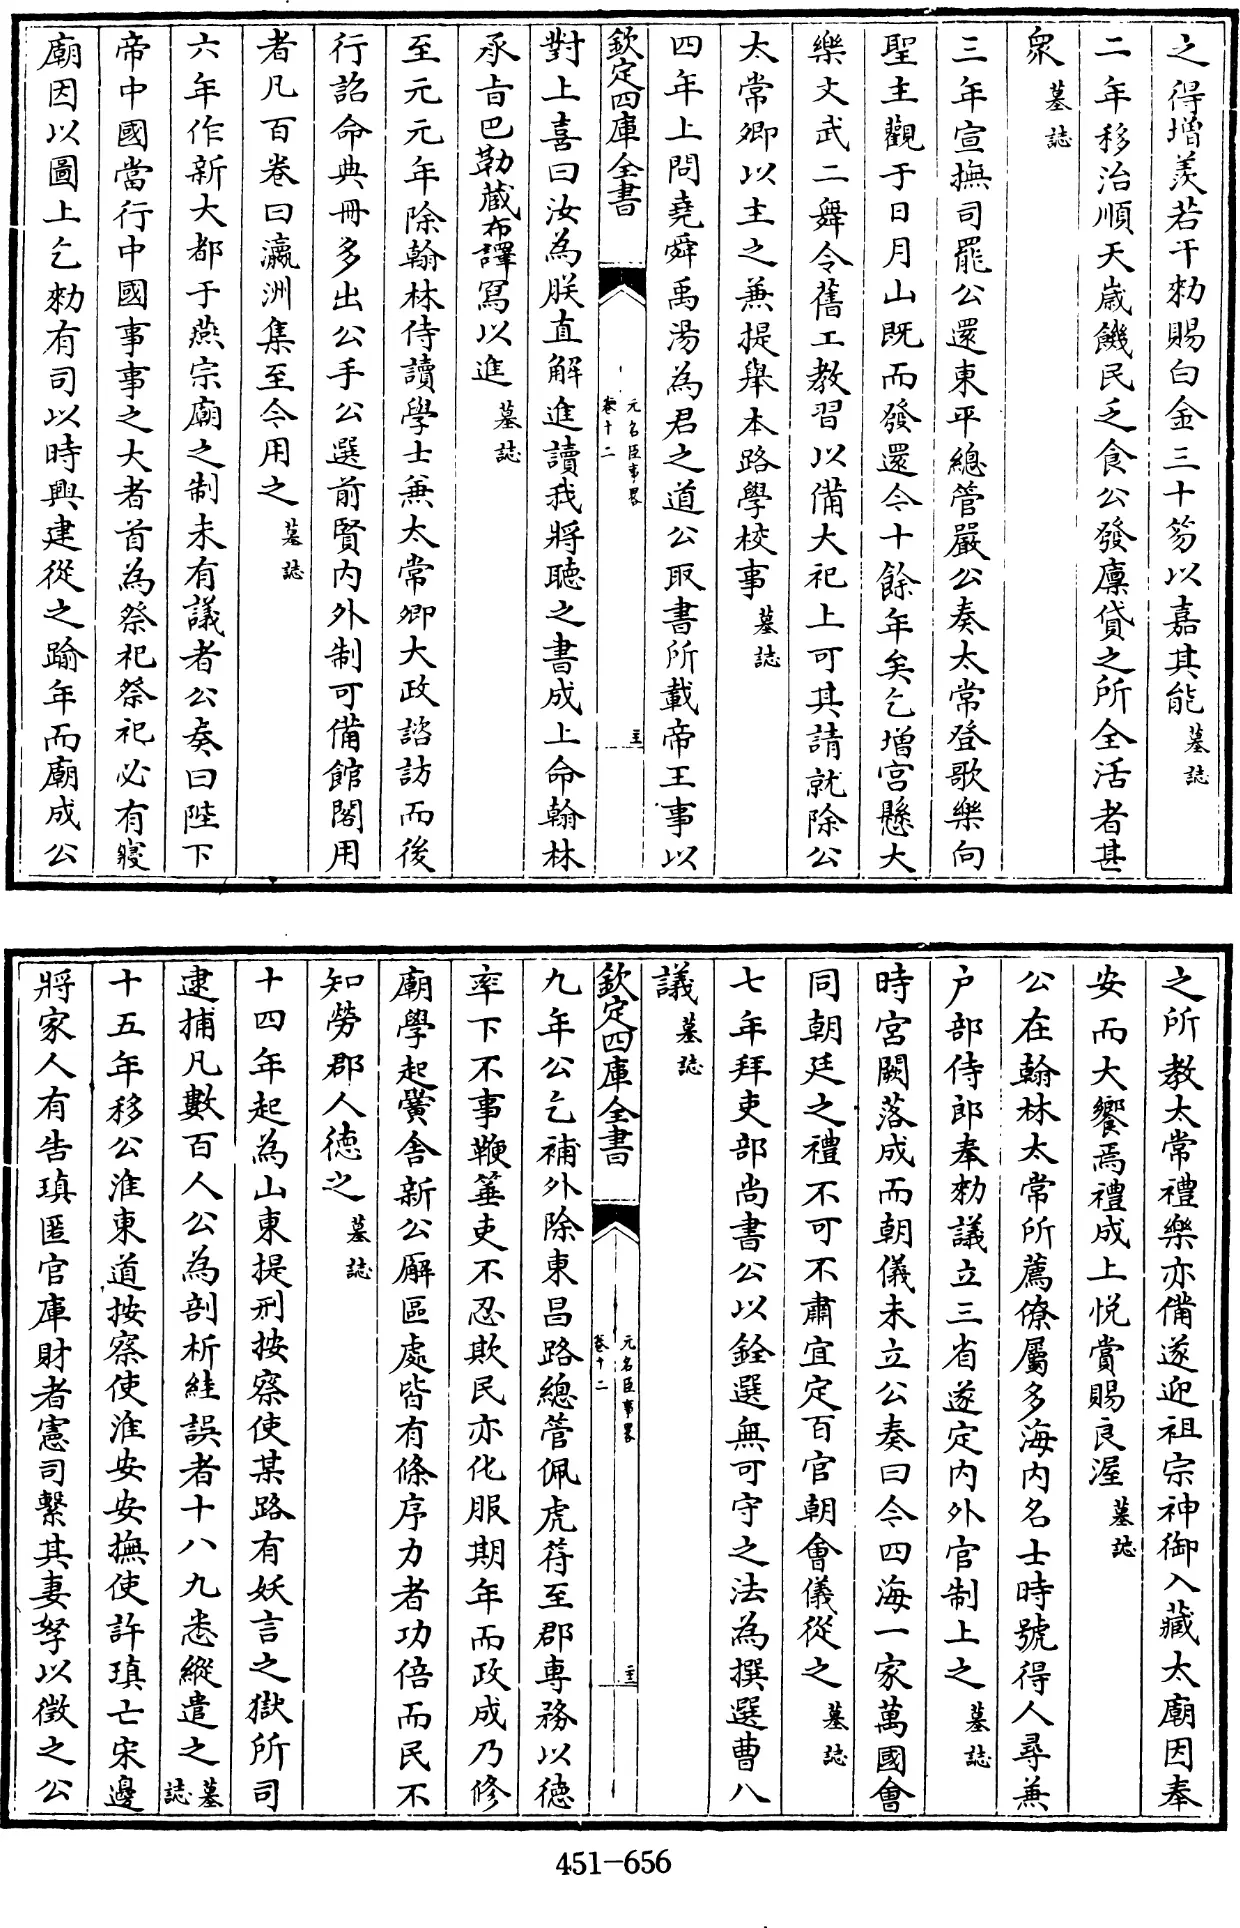 之得增羨若干勑賜白金三十笏以嘉其能墓誌
二年移治順天歲饑民乏食公發廪貸之所全活者甚
衆墓誌
三年宣撫司罷公還東平總管嚴公奏太常登歌樂向
聖主觀于日月山既而發還今十餘年矣乞增宫懸大
樂文武二舞令舊工教習以備大祀上可其請就除公
太常卿以主之兼提舉本路學校事墓誌
四年上問堯舜禹湯為君之道公取書所載帝王事以
欽定四庫全書
元名臣事畧
卷十二
對上喜曰汝為朕直解進讀我將聽之書成上命翰林
承旨巴勒藏布譯寫以進墓誌
至元元年除翰林侍讀學士兼太常卿大政諮訪而後
行詔命典冊多出公手公選前賢内外制可備館閣用
者凡百卷曰瀛洲集至今用之墓誌
六年作新大都于燕宗廟之制未有議者公奏曰陛下
帝中國當行中國事事之大者首為祭祀祭祀必有寢
廟因以圖上乞勑有司以時興建從之踰年而廟成公
之所教太常禮樂亦備遂迎祖宗神御入藏太廟因奉
安而大饗焉禮成上悦賞賜良渥墓誌
公在翰林太常所薦僚屬多海内名士時號得人尋兼
户部侍郎奉勑議立三省遂定内外官制上之墓誌
時宫闕落成而朝儀未立公奏曰今四海一家萬國會
同朝廷之禮不可不肅宜定百官朝會儀從之墓誌
七年拜吏部尚書公以銓選無可守之法為撰選曹八
議墓誌
欽定四庫全書
元名臣事畧
卷十二
九年公乞補外除東昌路總管佩虎符至郡專務以德
率下不事鞭箠吏不忍欺民亦化服期年而政成乃修
廟學起黌舍新公廨區處皆有條序力者功倍而民不
知勞郡人德之墓誌
十四年起為山東提刑按察使某路有妖言之獄所司
逮捕凡數百人公為剖析絓誤者十八九悉縱遣之墓誌
十五年移公淮東道按察使淮安安撫使許瑱亡宋邊
將家人有告瑱匿官庫財者憲司繫其妻孥以徵之公
451-656